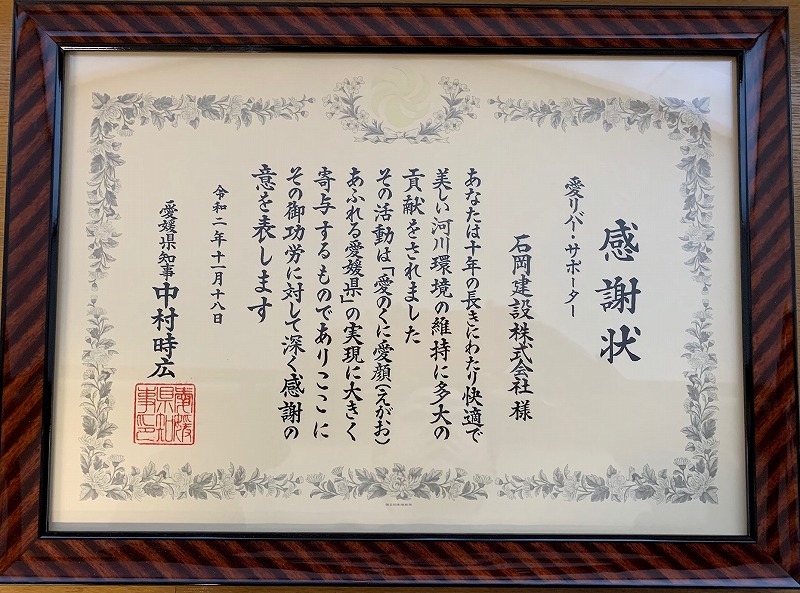 感謝状
愛リバー・サポーター
石岡建設株式会社 様
あなたは十年の長きにわたり快適で
美しい河川環境の維持に多大の
貢献をされました
その活動は「愛のくに愛顔(えがお)
あふれる愛媛県」の実現に大きく
寄与するものでありここに
その御功労に対して深く感謝の
意を表します
令和二年十一月十八日
愛媛県知事 中村時広
愛媛
県知
事印